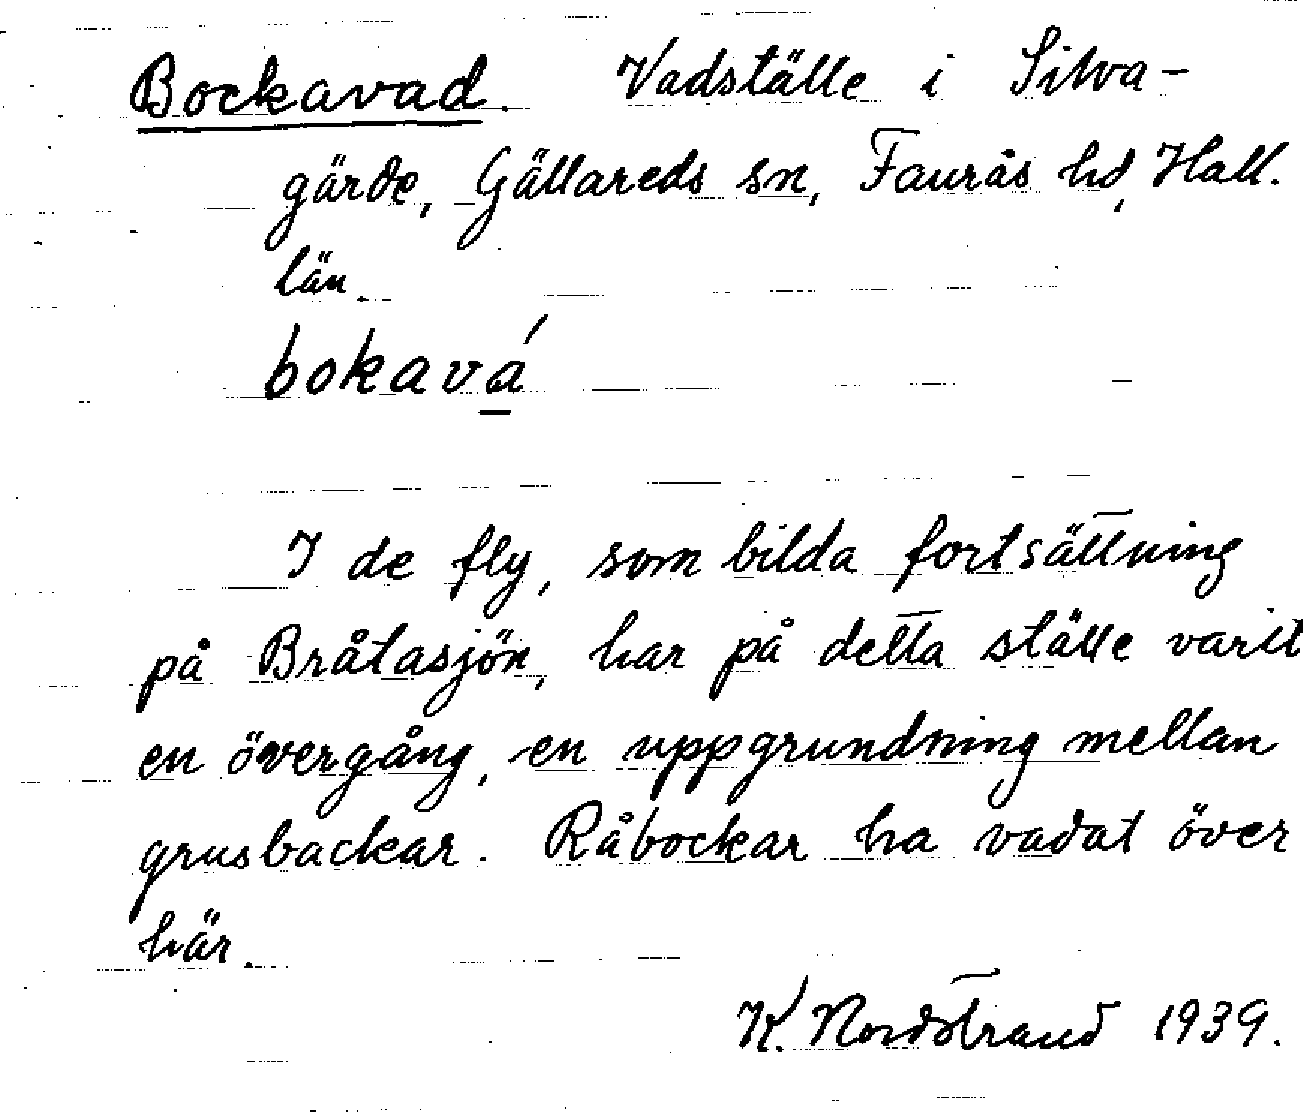 Bockavad. Vadställe i Silva-
gärde, Gällareds sn, Faurås hd, Hall.
län.
bokavá
I de fly, som bilda fortsättning
på Bråtasjön, har på detta ställe varit
en övergång, en uppgrundning mellan
grusbackar. Råbockar ha vadat över
här.
K. Nordstrand 1939.